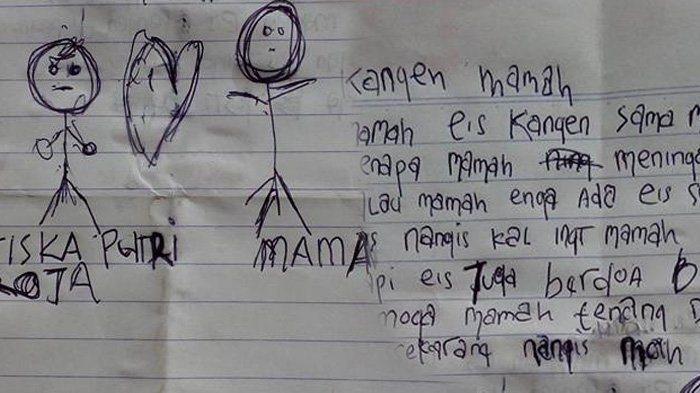 TISKA PUTRI MAMA
ROJA
Kangen mamah
amah eis Kangen sama m
enapa mamah meninga
lau mamah enga Ada eis s
s nangis kal ingt mamah
pi eis Juga berdoA b
moga mamah tenang
ekarang nangis mah